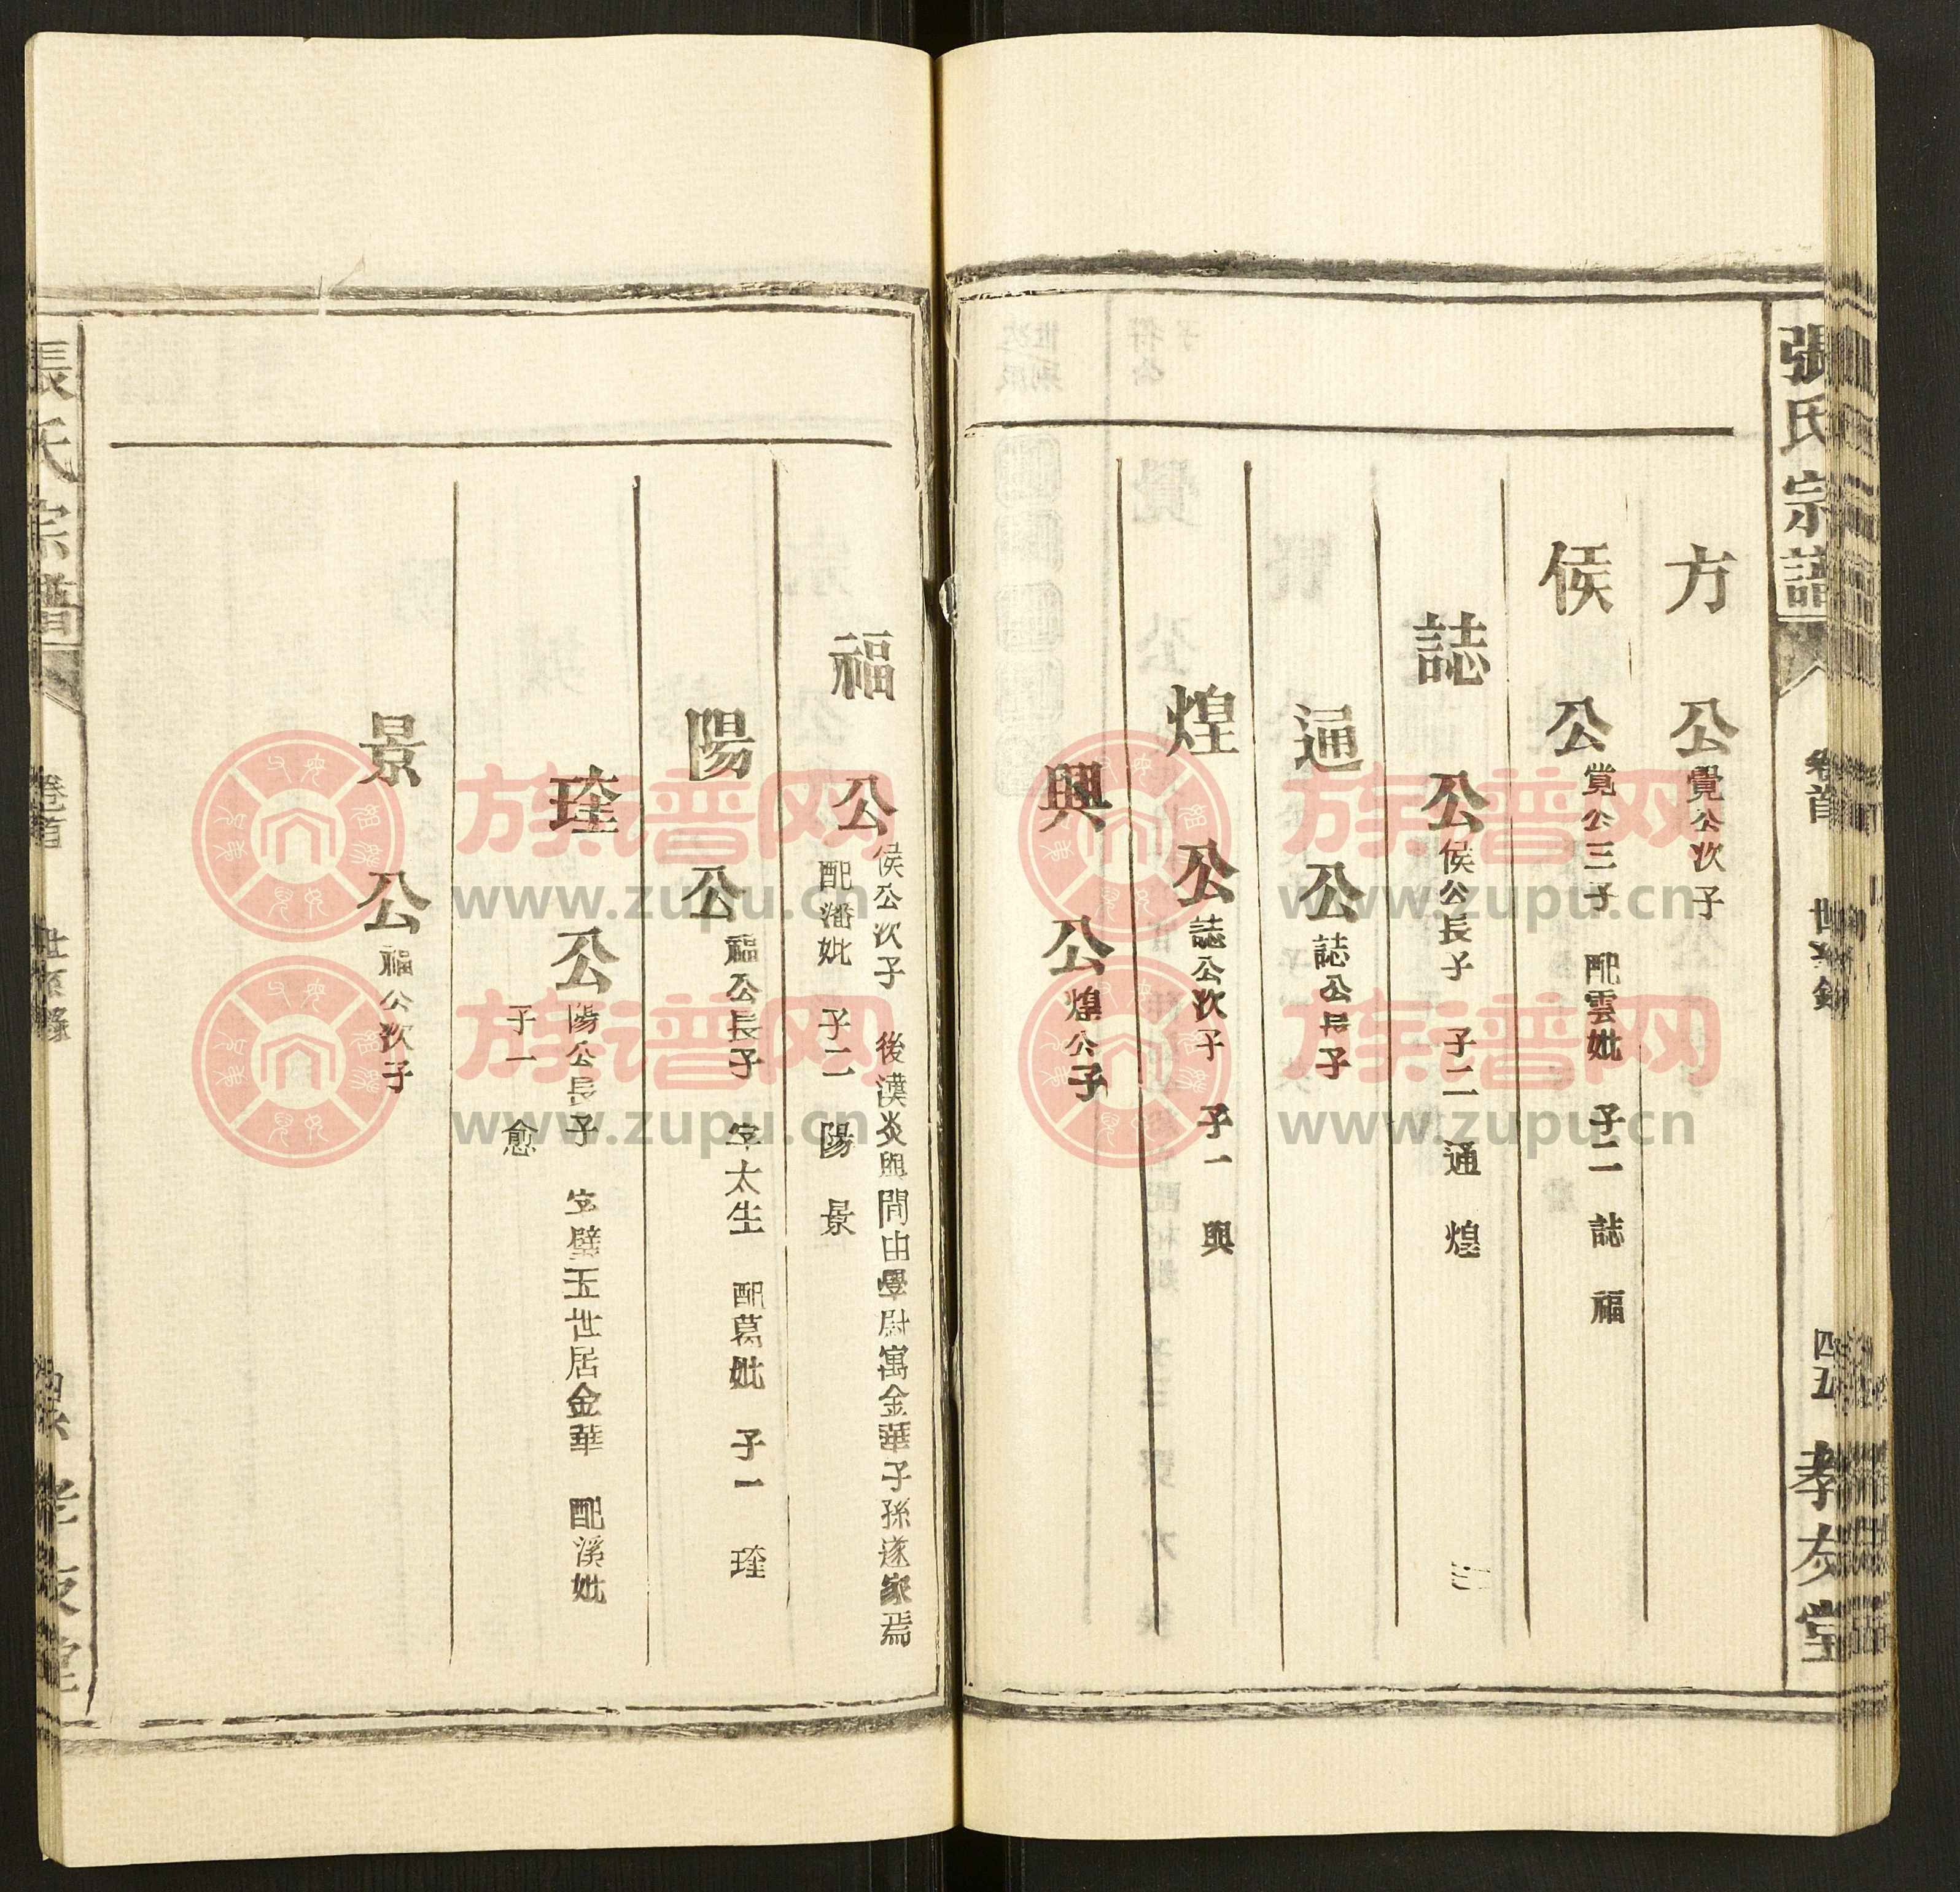 張氏宗譜
卷首
世系錄
四五
孝友堂
方公 覺公次子
侯公 覚公三子 配雲妣 子二 誌 福
誌公 侯公長子 子二 通 煌
通公 誌公長子
煌公 誌公次子 子一 興
興公 煌公子
福公 侯公次子 後漢炎興間由學尉寓金華子孫遂家焉
配潘妣 子二 陽 景
陽公 福公長子 字太生 配葛妣 子一 瑾
瑾公 陽公長子 字璧五世居金華 配溪妣
子一 愈
景公 福公次子
張氏宗譜
卷首
世系錄
孝友堂
族谱网
www.zupu.cn
族谱网
www.zupu.cn
族谱网
www.zupu.cn
族谱网
www.zupu.cn